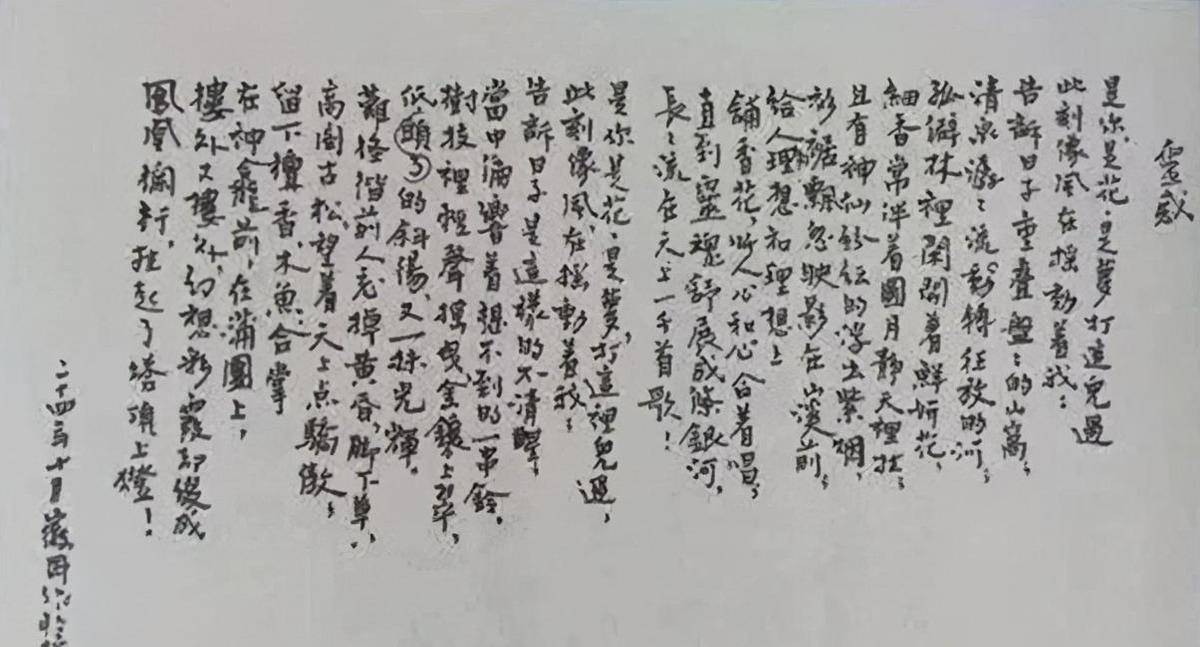 靈感
是你,是花,是夢,打這兒過
此刻像風在搖動着我;
告訴日子重疊盤〻的山窩;
清泉潺〻流動轉狂放的河;
孤僻林裡閑開着鮮妍花,
細香常伴着圓月靜天裡掛;
且有神仙紛紜的浮出紫烟,
衫裾飄忽映影在山溪前;
給人理想和理想上
舖香花,叫人心和心合着唱,
直到靈魂舒展成條銀河,
長〻流在天上一千首歌!
是你,是花,是夢,打這裡兒過,
此刻像風,在搖動着我;
告訴日子是這樣的不清醒,
當中偏響着想不到的一串鈴,
樹枝裡輕聲搖曳,金鑲上翠,
低頭了的斜陽,又一抹光輝。
難怪階前人忘掉黃昏,腳下草,
高閣古松,望着天上点驕傲;
留下檀香,木魚,合掌
在神龕前,在蒲團上,
樓外又樓外,幻想彩霞卻綴成
鳳凰欄杆,挂起了塔頂上燈!
二十四年十月 徽因作